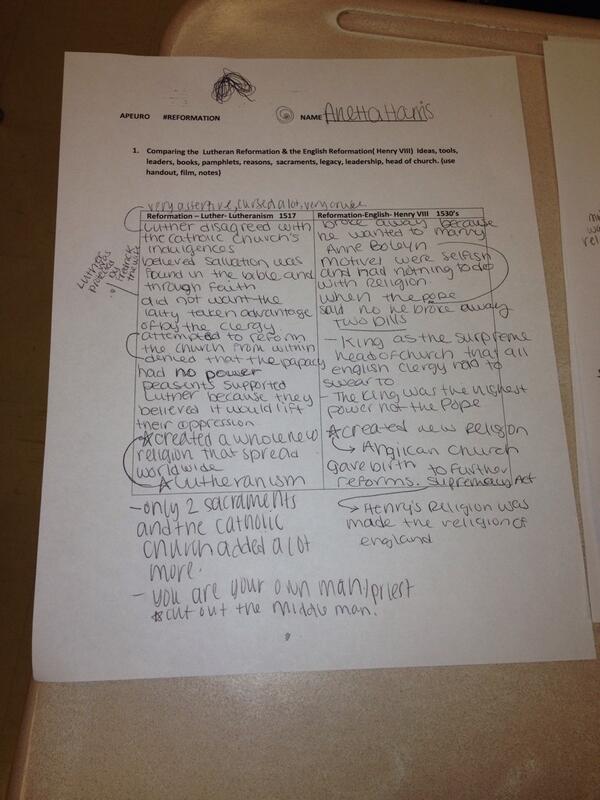 APEURO #REFORMATION NAME Anetta Harris
1. Comparing the Lutheran Reformation & the English Reformation( Henry VIII) Ideas, tools,
leaders, books, pamphlets, reasons, sacraments, legacy, leadership, head of church. (use
handout, film, notes)
very assertive, cursed a lot, very crude
Reformation – Luther- Lutheranism 1517
Luther disagreed with
the catholic church's
indulgences
believed salvation was
found in the bible and
through faith
did not want the
laity taken advantage
of by the clergy.
attempted to reform
the church from within
denied that the papacy
had no power
peasents supported
Luther because they
believed it would lift
their oppression
created a whole new
religion that spread
worldwide
Lutheranism
- only 2 sacraments
and the catholic
church added a lot
more.
- you are your own man/priest
cut out the middle man.
Luther
was
protected
by
the wise
Reformation-English- Henry VIII 1530's
broke away because
he wanted to marry
Anne Boleyn
motives were selfish
and had nothing to do
with religion.
when the pope
said no he broke away
TWO Bills
- King as the surpreme
head of church that all
english clergy had to
swear to
- The King was the highest
power not the Pope
created new religion
Anglican church
gave birth to further
reforms. Supremacy Act
Henry's Religion was
made the religion of
england